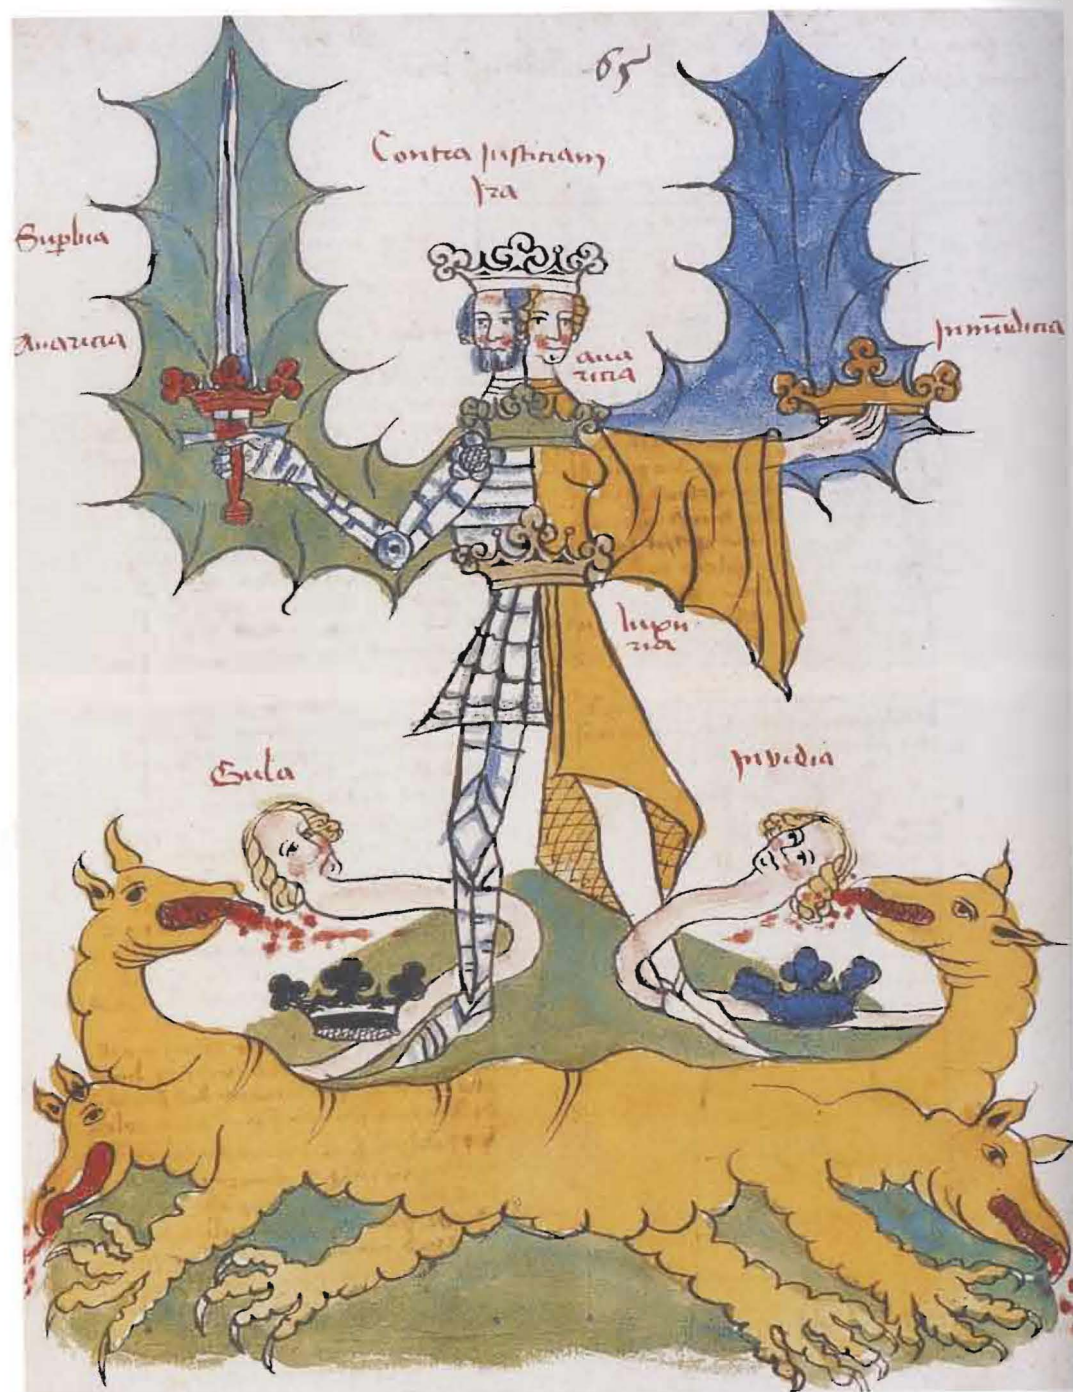 65
Contra Justiciam
Ira
Sup̱bia
Auaricia
Inmu̅dicia
aua
ricia
luxu
ria
Gula
Invidia